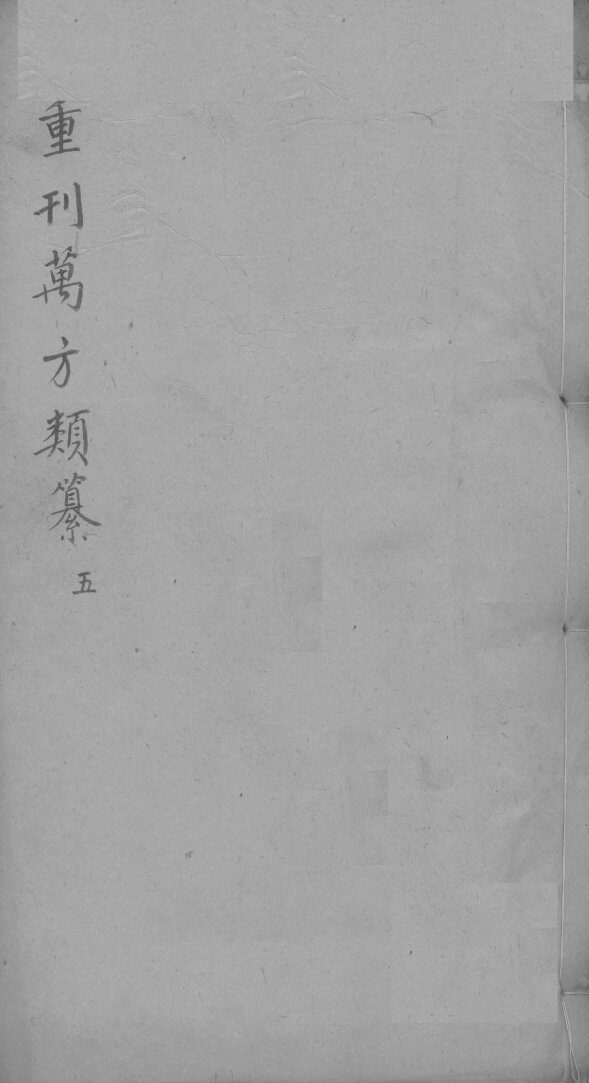 重刊萬方類纂 五